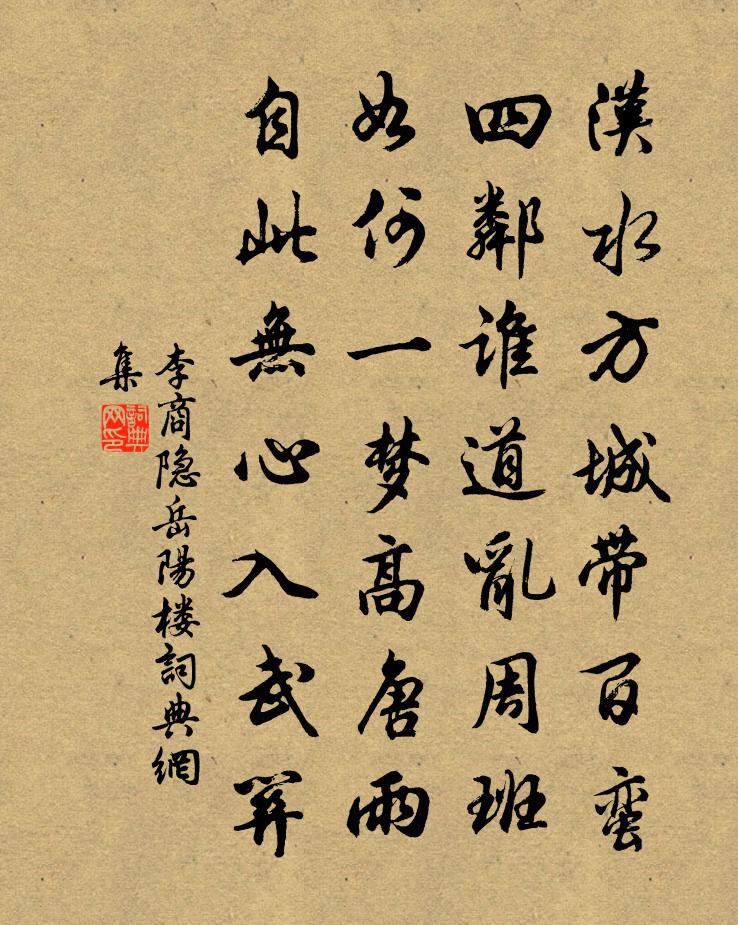 漢水方城帶百蛮
四鄰誰道亂周班
如何一梦高唐雨
自此無心入武関
李商隐岳陽楼詞典網
集
詞典
网印